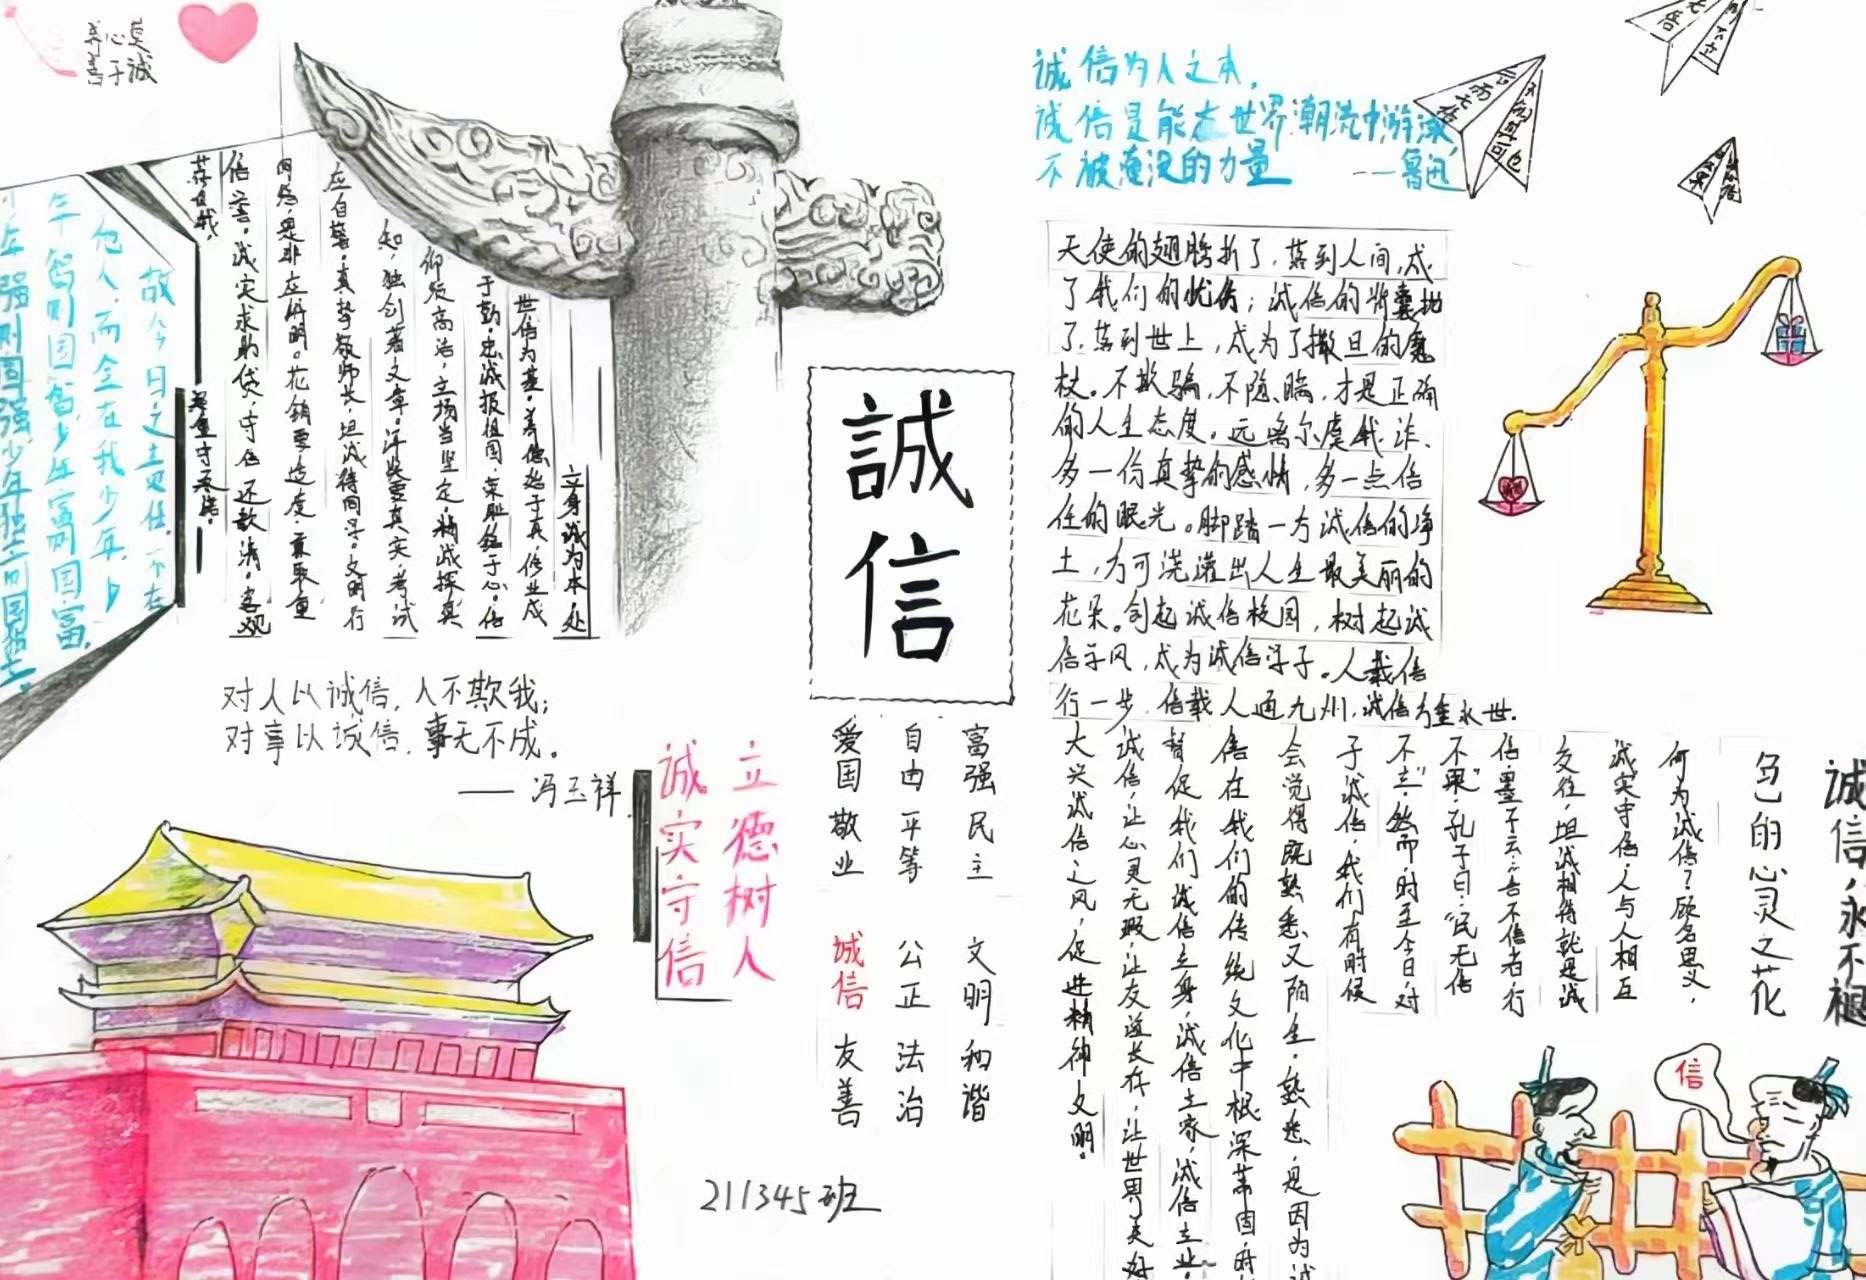 养心莫
善于诚
故今日之责任，不在
他人，而全在我少年。少
年智则国智，少年富则国富，
少年强则国强，少年独立则国独立。
立身诚为本，处
世信为基。善德始于真，修业成
于勤。忠诚报祖国，荣耻铭于心。信
仰须高洁，立场当坚定。精诚探真
知，独创著文章。评奖要真实，考试
应自律。真挚敬师长，坦诚待同学。文明行
网络，是非应明。花销要适度，
信寄。诚实求助贷，守信还款清。客观
荐自我，
郑重守承诺。
对人以诚信，人不欺我；
对事以诚信，事无不成。
——冯玉祥
立德树人
诚实守信
誠信
富强民主 文明和谐
自由平等 公正法治
爱国敬业 诚信友善
211345班
诚信为人之本，
诚信是能在世界潮流中游泳，
不被淹没的力量 ——鲁迅
言而无信
不知其可也
天使的翅膀折了，落到人间，成
了我们的忧伤；诚信的背囊抛
了，落到世上，成为了撒旦的魔
杖。不欺骗，不隐瞒，才是正确
的人生态度。远离尔虞我诈、
多一份真挚的感情，多一点信
任的眼光。脚踏一方诚信的净
土，方可浇灌出人生最美丽的
花朵。创起诚信校园，树起诚
信学风，成为诚信学子。人载信
行一步，信载人通九州，诚信方全永世。
诚信，永不褪
色的心灵之花
何为诚信？顾名思义，
诚实守信，人与人相互
交往，坦诚相待就是诚
信。墨子云：“言不信者，行
不果”，孔子曰：“民无信
不立”，然而，时至今日，对
于诚信，我们有时候
会觉得既熟悉又陌生。熟悉，是因为诚
信在我们的传统文化中根深蒂固，时
督促我们诚信立身，诚信立家，诚信立业。
诚信，让心灵无瑕，让友谊长存，让世界美好
大兴诚信之风，促进精神文明。
信